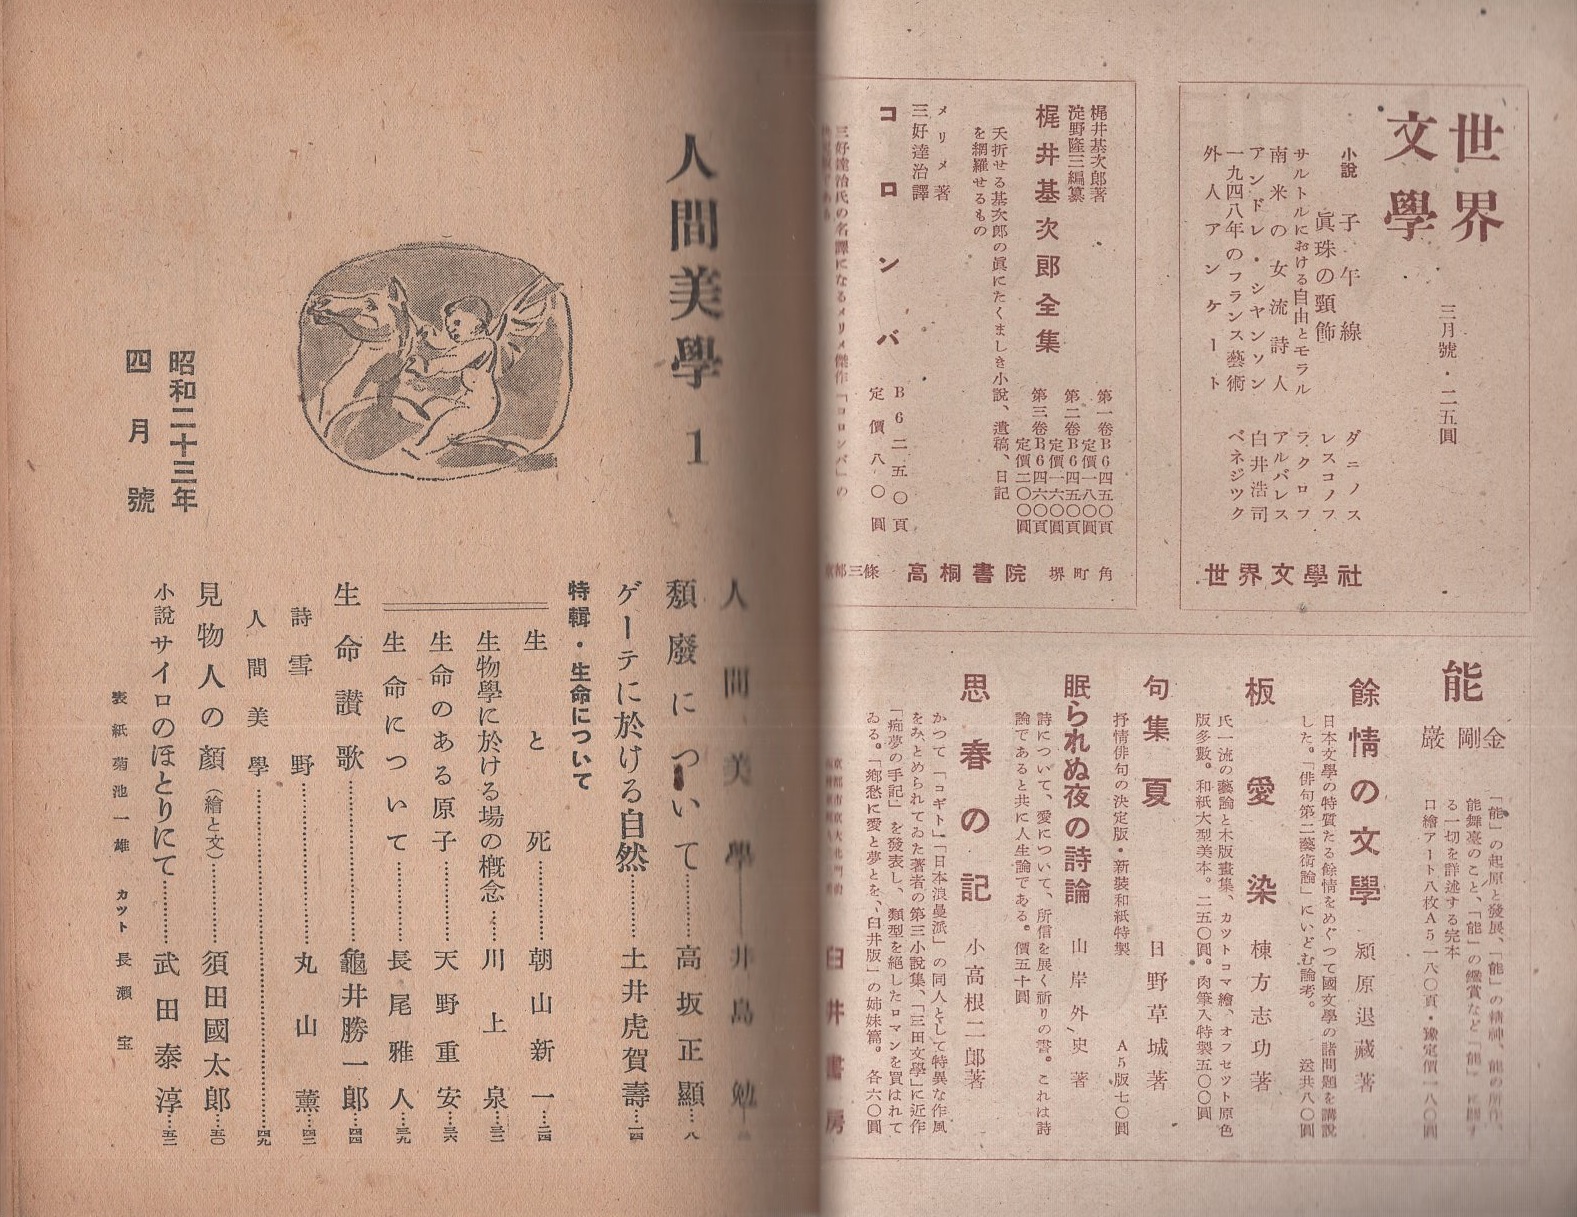 世界
文學
三月號・二五圓
小說 子午線 ダニノス
眞珠の頸飾 レスコノフ
サルトルにおける自由とモラル ラクロフ
南米の女流詩人 アルバレス
アンドレ・シヤンソン 白井浩司
一九四八年のフランス藝術 ベネジツク
外人アンケート
世界文學社
梶井基次郎著
淀野隆三編纂
梶井基次郎全集
第一卷B6四五〇頁
定價一八〇圓
第二卷B6四五〇頁
定價一六〇圓
第三卷B6四六〇頁
定價二〇〇圓
夭折せる基次郎の眞にたくましき小說、遺稿、日記
を網羅せるもの
メリメ著
三好達治譯
コロンバ
B6二五〇頁
定價八〇圓
三好達治氏の名譯になるメリメ傑作「コロンバ」の
三條 高桐書院 堺町角
能
金剛巖
「能」の起原と發展、「能」の精神、能の所作、
能舞臺のこと、「能」の鑑賞など「能」に關す
る一切を詳述する完本
口繪アート八枚A5一八〇頁・豫定價一八〇圓
餘情の文學 潁原退藏著
日本文學の特質たる餘情をめぐつて國文學の諸問題を講說
した。「俳句第二藝術論」にいどむ論考。 送共八〇圓
板愛染 棟方志功著
氏一流の藝論と木版畫集、カツトコマ繪、オフセツト原色
版多數。和紙大型美本。二五〇圓。肉筆入特製五〇〇圓
句集 夏 日野草城著
抒情俳句の決定版・新裝和紙特製 A5版七〇圓
眠られぬ夜の詩論 山岸外史著
詩について、愛について、所信を展く祈りの書。これは詩
論であると共に人生論である。價五十圓
思春の記 小高根二郎著
かつて「コギト」「日本浪曼派」の同人として特異な作風
をみとめられてゐた著者の第三小說集、「三田文學」に近作
「痴夢の手記」を發表し、類型を絕したロマンを買はれて
ゐる。「鄕愁に愛と夢とを、臼井版」の姉妹篇。各六〇圓
臼井書房
人間美學 1
昭和二十三年
四月號
人間美學 井島勉
頽廢について 高坂正顯 八
ゲーテに於ける自然 土井虎賀壽 一四
特輯・生命について
生と死 朝山新一 二四
生物學に於ける場の概念 川上泉 三二
生命のある原子 天野重安 三六
生命について 長尾雅人 三九
生命讃歌 龜井勝一郎 四四
詩 雪野 丸山薰 四二
人間美學 四九
見物人の顏（繪と文） 須田國太郎 五〇
小說 サイロのほとりにて 武田泰淳 五二
表紙 菊池一雄 カット 長瀨宝